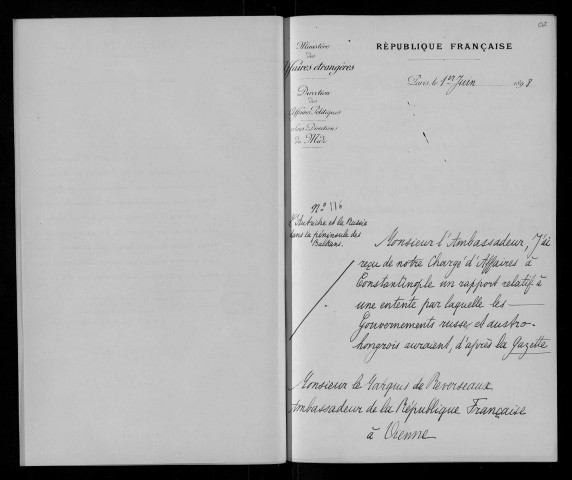 Ministère
des
Affaires étrangères
Direction
des
Affaires Politiques
Sous-Direction
du Midi
RÉPUBLIQUE FRANÇAISE
Paris, le 1er Juin 1898
No 116
L'Autriche et la Russie
dans la péninsule des
Balkans.
Monsieur l'Ambassadeur, J'ai
reçu de notre Chargé d'Affaires à
Constantinople un rapport relatif à
une entente par laquelle les
Gouvernements russe et austro-
hongrois auraient, d'après la Gazette
Monsieur le Marquis de Reverseaux
Ambassadeur de la République Française
à Vienne